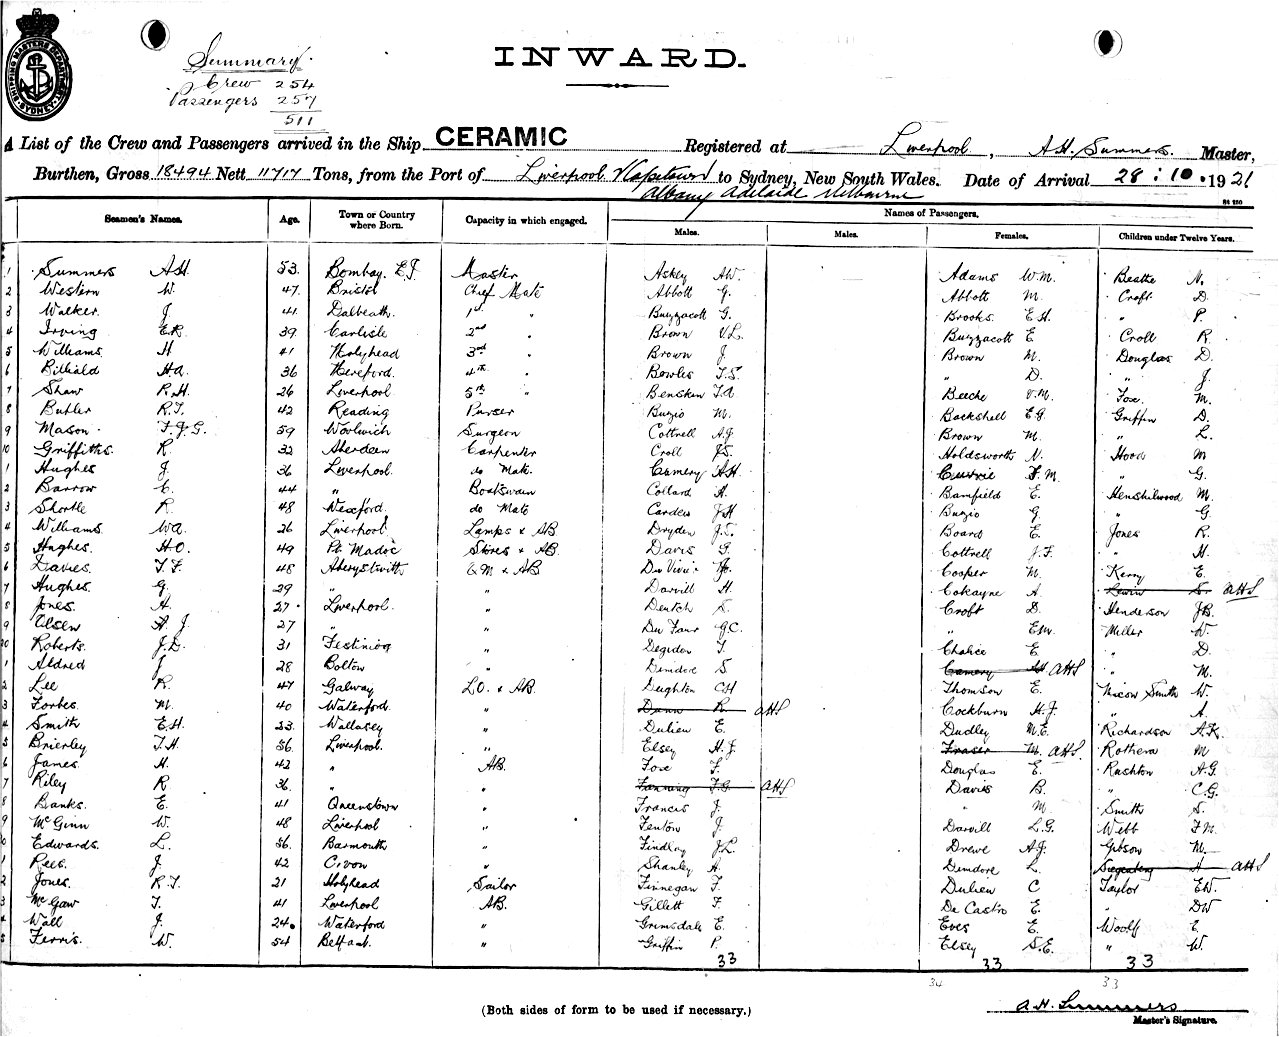 SHIPPING MASTERS DEPARTMENT SYDNEY
Summary.
Crew 254
Passengers 257
511
INWARD.
A List of the Crew and Passengers arrived in the Ship CERAMIC Registered at Liverpool, A.H. Summers Master,
Burthen, Gross 18494 Nett 11717 Tons, from the Port of Liverpool Capetown to Sydney, New South Wales. Date of Arrival 28:10.1921
Albany Adelaide Melbourne
Seamen's Names. Age. Town or Country where Born. Capacity in which engaged. Names of Passengers.
Males. Males. Females. Children under Twelve Years.
1 Summers A.H. 53 Bombay. E.I. Master Askey A.W. Adams W.M. Beattie N.
2 Western W. 47 Bristol Chief Mate Abbott G. Abbott M. Croft D.
3 Walker J. 41 Dalbeath 1st " Buzzacott G. Brooks E.H. " P.
4 Irving E.R. 39 Carlisle 2nd " Brown V.L. Buzzacott E. Croll R.
5 Williams H 41 Holyhead 3rd " Brown J. Brown M. Douglas D.
6 H.A. 36 Hereford. 4th " Bowles T.S. " D. " J.
7 Shaw R.H. 26 Liverpool 5th " Bensken T.A. Beeche V.M. Fox M.
8 Butler R.T. 42 Reading Purser Buzio M. Backshell E.G. Griffin D.
9 Mason F.J.G. 59 Woolwich Surgeon Cottrell A.J. Brown M. " L.
10 Griffiths R. 32 Aberdeen Carpenter Croll J.S. Holdsworth N. Hood M
1 Hughes J. 36 Liverpool. do Mate. Camery A.H. Currie F.M. " G.
2 Barrow C. 44 " Boatswain Collard A. Bamfield E. Henshilwood M.
3 Shortle R. 48 Wexford. do Mate Carden J.H. Buzio G. " G.
4 Williams W.A. 26 Liverpool Lamps & AB Dryden J.S. Board E. Jones R.
5 Hughes H.O. 49 Pt. Madoc Stores & AB. Davis G. Cottrell J.F. " H.
6 Davies. T.F. 48 Aberystwith Q.M & AB Du Cooper M. Kerry E.
7 Hughes G. 29 " " Darvill H. Cokayne A. Lewin S. AHS
8 Jones A. 27 Liverpool. " Deutch S. Croft D. Henderson J.B.
9 Olsen A.J. 27 " " Du Faur G.C. " E.M. Miller W.
20 Roberts. J.D. 31 Festiniog " Degidon T. Chalice E. " D.
1 Aldred J 28 Bolton " Dimdore S. Camery AHS " M.
2 Lee R. 47 Galway L.O. & AB. Deighton C.H Thomson E. Nicow Smith W.
3 Forbes M. 40 Waterford. " Dunn R. AHS Cockburn H.J. " A.
4 Smith E.H. 23 Wallasey " Dulien E. Dudley M.E. Richardson A.K.
5 Brierley T.H. 56 Liverpool. " Elsey H.J. Fraser M. AHS Rothera M
6 James H. 42 " AB. Fox F. Douglas E. Rushton A.G.
7 Riley R 36 " " Fanning F.G. AHS Davis B. " C.G.
8 Banks. E. 41 Queenstown " Francis J. " M Smith S.
9 McGinn W. 48 Liverpool " Fenton J. Darvill L.G. Webb F.M.
0 Edwards. L. 56 Barmouth " Findlay J.L. Drewe A.J. Gibson M.
1 Rees. J. 42 C'von " Shanley A. Dimdore L. AHS
2 Jones. R.T. 21 Holyhead Sailor Finnegan F. Dulien C Taylor E.W.
3 McGaw T. 41 Liverpool AB. Gillett F. De Castro E. " D.W
4 Wall J. 24 Waterford " Grimsdale E. Eves E. Woolf E.
5 Ferris. W. 54 Belfast. " Griffin P. Elsey S.E. " W.
33 33 33
34 33
(Both sides of form to be used if necessary.)
A.H. Summers
Master's Signature.